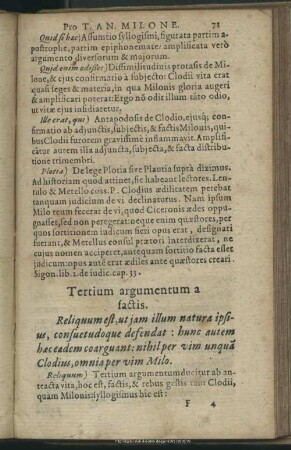 Pro T. AN. MILONE. 71
Quid si hæc) Assumtio syllogismi, figurata partim a-
postrophe, partim epiphonemate: amplificata verò
argumento diversorum & majorum.
Quid enim odisset) Dissimilitudinis protasis de Mi-
lone, & ejus confirmatio à subjecto: Clodii vita erat
quasi seges & materia, in qua Milonis gloria augeri
& amplificari poterat: Ergo nō odit illum tāto odio,
ut vitæ ejus insidiaretur.
Ille erat, qui) Antapodosis de Clodio, ejusq; con-
firmatio ab adjunctis, subjectis, & factis Milonis, qui-
bus Clodii furorem gravissimè inflammavit. Amplifi-
cātur autem illa adjuncta, subjecta, & facta distribu-
tione trimembri.
Plotia) De lege Plotia sive Plautia suprà diximus.
Ad historiam quod attinet, sic habeant lectores. Len-
tulo & Metello coss. P. Clodius ædilitatem petebat
tanquam judicium de vi declinaturus. Nam ipsum
Milo reum fecerat de vi, quod Ciceronis ædes oppu-
gnasset, sed non peregerat: neque enim quæstores, per
quos sortitionem judicum fieri opus erat, designati
fuerant, & Metellus consul prætori interdixerat, ne
cujus nomen acciperet, antequam sortitio facta esset
judicum: opus autē erat ædiles ante quæstores creari.
Sigon. lib. 2. de iudic. cap. 33.
Tertium argumentum a
factis.
Reliquum est, ut jam illum natura ipsi-
us, consuetudoque defendat: hunc autem
hæc eadem coarguant: nihil per vim unquā
Clodius, omnia per vim Milo.
Reliquum) Tertium argumentum ducitur ab an-
teacta vita, hoc est, factis, & rebus gestis tam Clodii,
quam Milonis: syllogismus hic est:
F 4